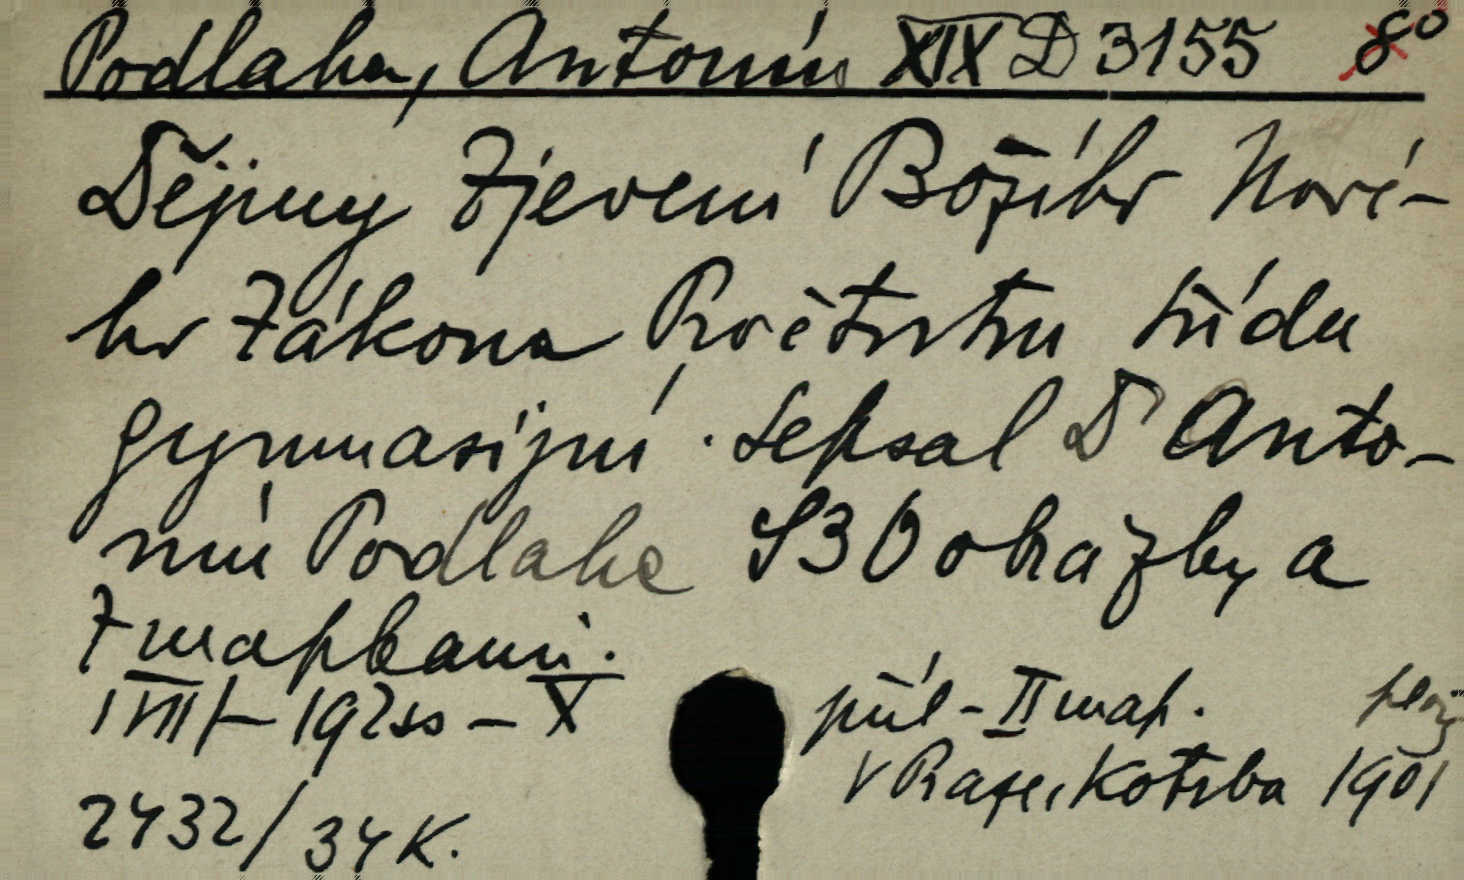 Podlaha, Antonín XIX D 3155 8°
Dějiny Zjevení Božího Nové-
ho Zákona Pro čtvrtou třídu
gymnasijní. Sepsal Dr Anto-
nín Podlaha S 30 obrazky a
7 mapkami.
VIII - 192 ss - X příl - II map.
v Praze, Kotrba 1901
2432/34 K.